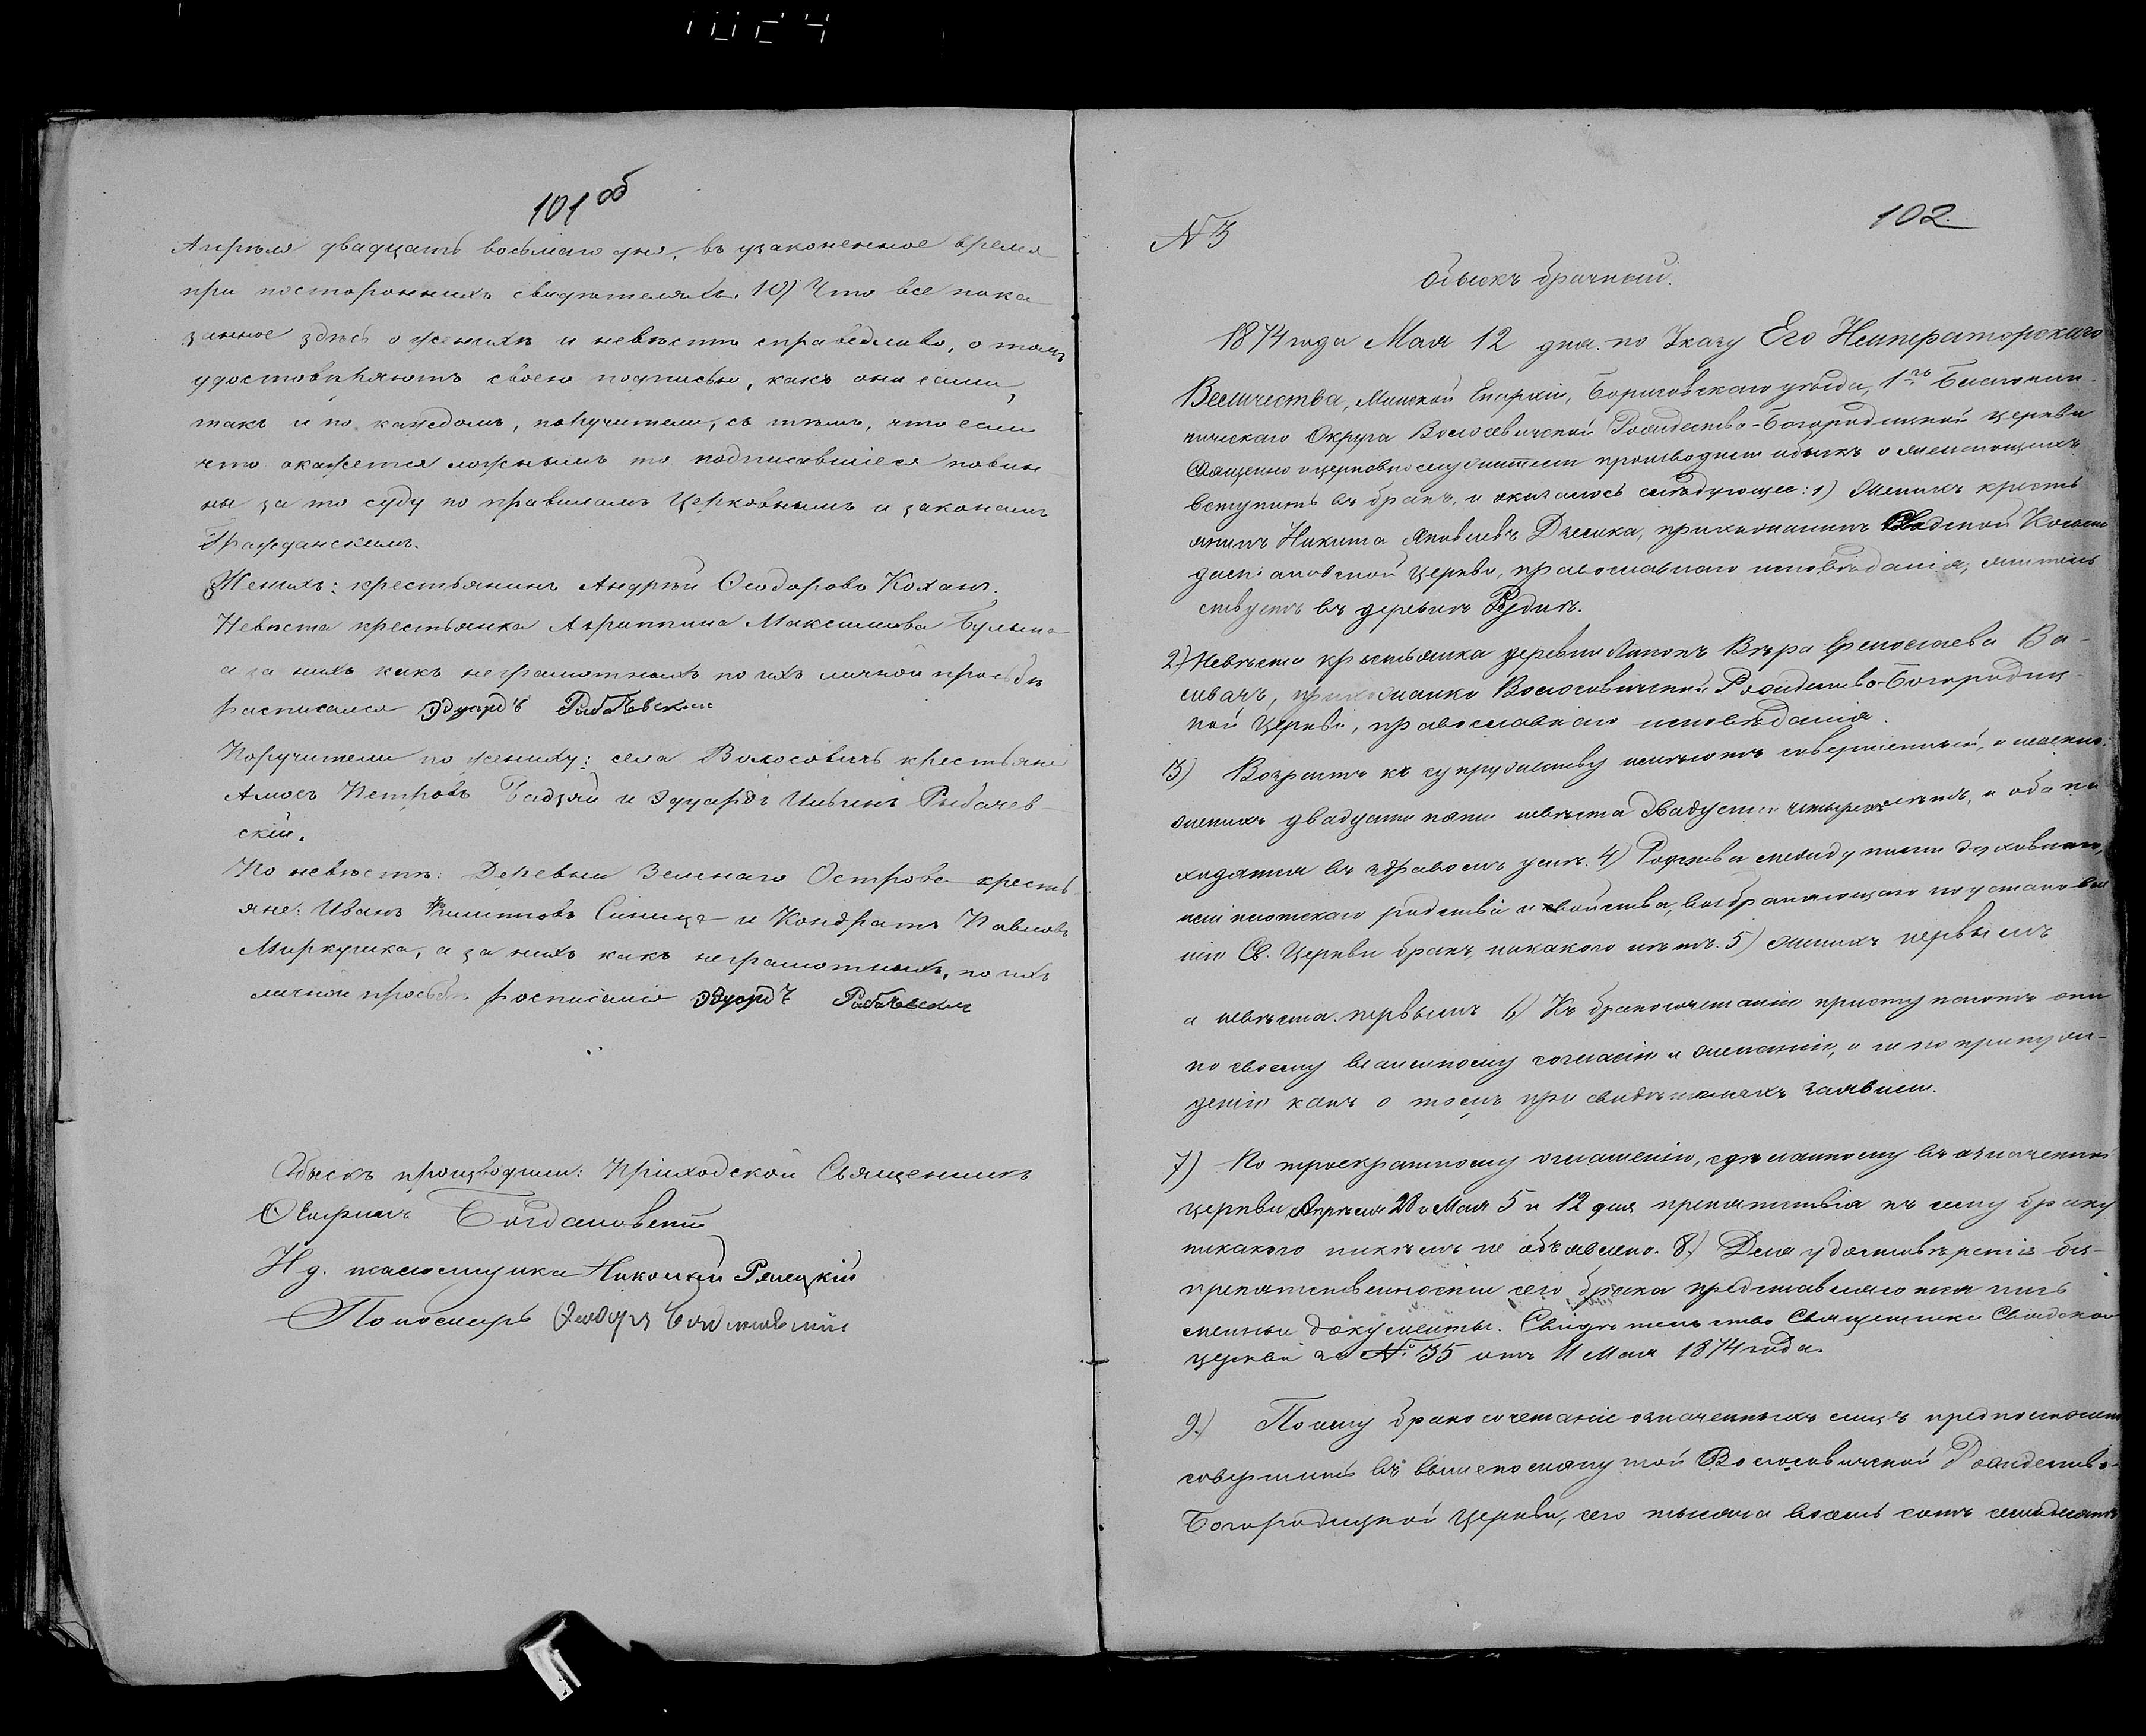 101 об
Апрѣля двадцать восьмаго дня, въ узаконенное время
при постороннихъ свидѣтеляхъ. 10) Что все пока
занное здѣсь о женихѣ и невѣстѣ справедливо, о томъ
удостовѣряютъ своею подписью, какъ они сами,
такъ и по каждомъ, поручители, съ тѣмъ, что если
что окажется ложнымъ то подписавшіеся повин
ны за то суду по правиламъ Церковнымъ и законамъ
Гражданскимъ.
Женихъ: крестьянинъ Андрей Ѳеодоровъ Коханъ.
Невѣста крестьянка Агриппина Максимова
а за нихъ какъ неграмотныхъ по ихъ личной просьбѣ
расписался Эдуардъ
Поручители по женихѣ: села Волосовичъ крестьяне
Петровъ и Эдуардъ Ивинъ Рыбачев
скій.
По невѣстѣ: Деревни Зеленаго Острова кресть
яне: Иванъ Филиповъ Синица и Кондратъ Павловъ
а за нихъ какъ неграмотныхъ, по ихъ
личной просьбѣ росписался Эдуардъ
Обыскъ производили: Приходской Священникъ
Богдановичъ
И д. псаломщика Николай
Пономарь
102.
N 3
Обыскъ брачный.
1874 года Мая 12 дня. по Указу Его Императорскаго
Величества, Минской Епархіи, Борисовскаго уѣзда, 1го Благочин-
ническаго Округа Волосевичской Рождество-Богородицкой церкви
Священно и церковнослужители производили обыскъ о желающихъ
вступить въ бракъ, и оказалось слѣдующее: 1) Женихъ кресть
янинъ Никита Яковлевъ прихожанинъ Свядской
церкви, православнаго исповѣданія, житель
ствуетъ въ деревнѣ Рудне.
2) Невѣста крестьянка деревни Вѣра Ва-
прихожанка Волосовичской Рождество-Богородиц-
кой церкви, православнаго исповѣданія.
3) Возрастъ къ супружеству имѣютъ совершенный, и именно:
женихъ двадцати пяти невѣста двадцати четырехъ лѣтъ, и оба на
ходятся въ здравомъ умѣ. 4) Родства между ними духовнаго,
или плотскаго родства и свойства, возбраняющаго по установле
нію Св. Церкви бракъ, никакого нѣтъ. 5) Женихъ первымъ
а невѣста первымъ 6) Къ бракосочетанію приступаютъ они
по своему взаимному согласію и желанію, а не по принуж-
денію какъ о томъ при свидѣтеляхъ заявили.
7) По троекратному оглашенію, сдѣланному въ означенной
церкви Апрѣля 28 и Мая 5 и 12 дня препятствія къ сему браку
никакого никѣмъ не объявлено. 8.) Для удостовѣренія без-
препятственности сего брака представляются пись
менные документы. Свидѣтельство Священника Свядской
церкви за № 35 отъ 11 Мая 1874 года.
9.) Посему бракосочетаніе означенныхъ лицъ предположено
совершить въ вышепомянутой Волосовичской Рождество-
Богородицкой церкви, сего тысяча восемь сотъ семьдесятъ